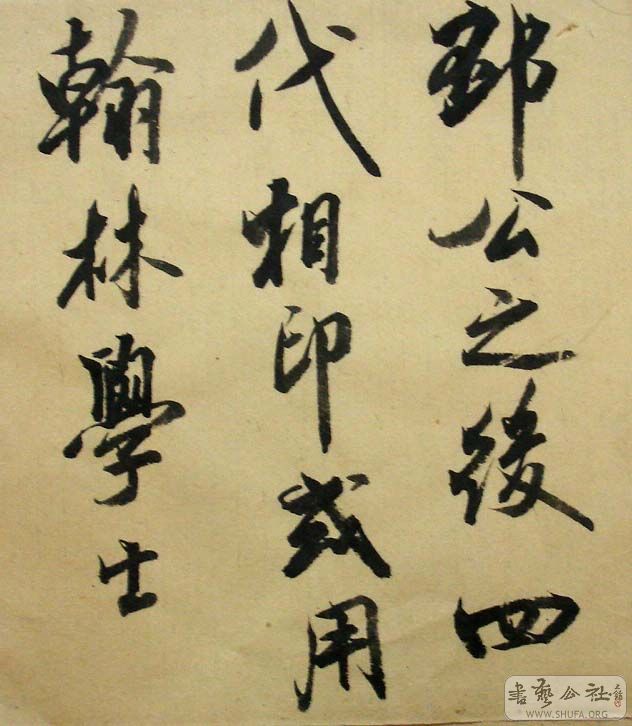 邳公之後四
代相印或用
翰林學士
書藝公社
WWW.SHUFA.ORG